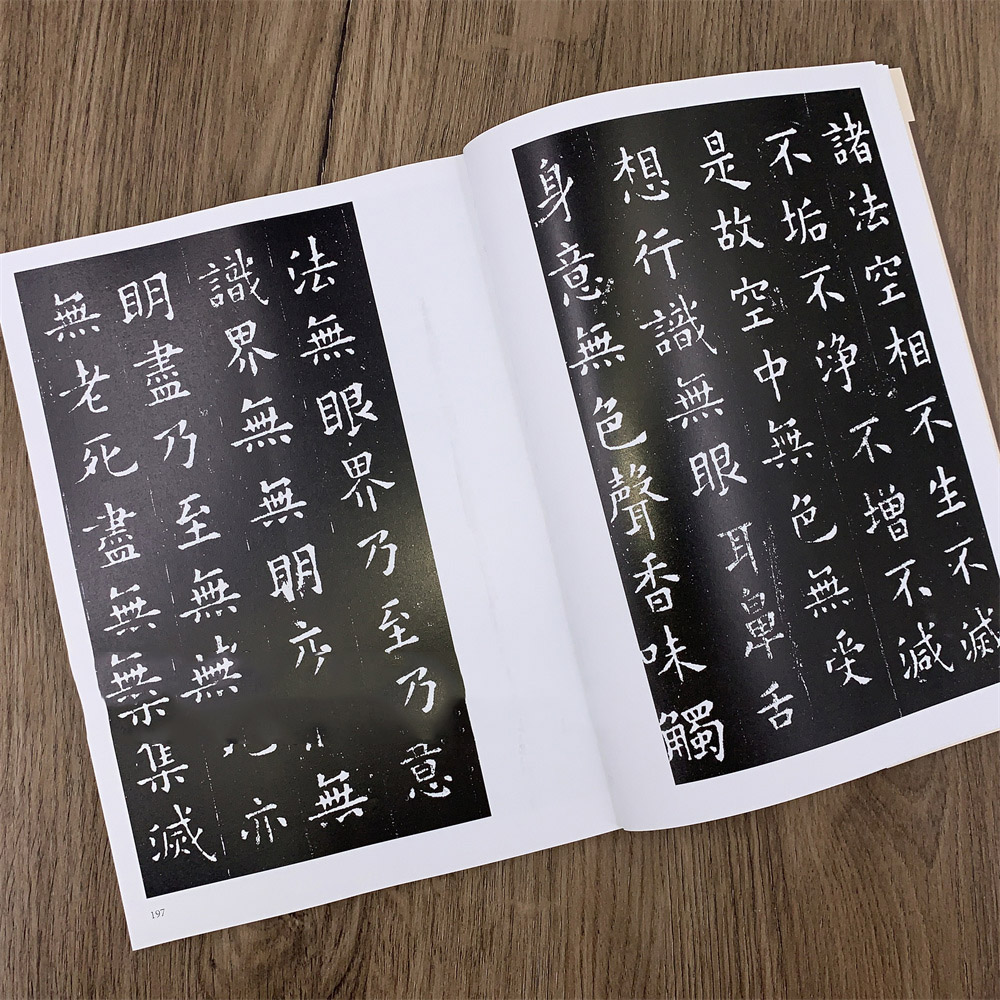 諸法空相不生不滅
不垢不淨不增不減
是故空中無色無受
想行識無眼耳鼻舌
身意無色聲香味觸
法無眼界乃至乃意
識界無無明亦無
明盡乃至無無亦
無老死盡無集滅
197